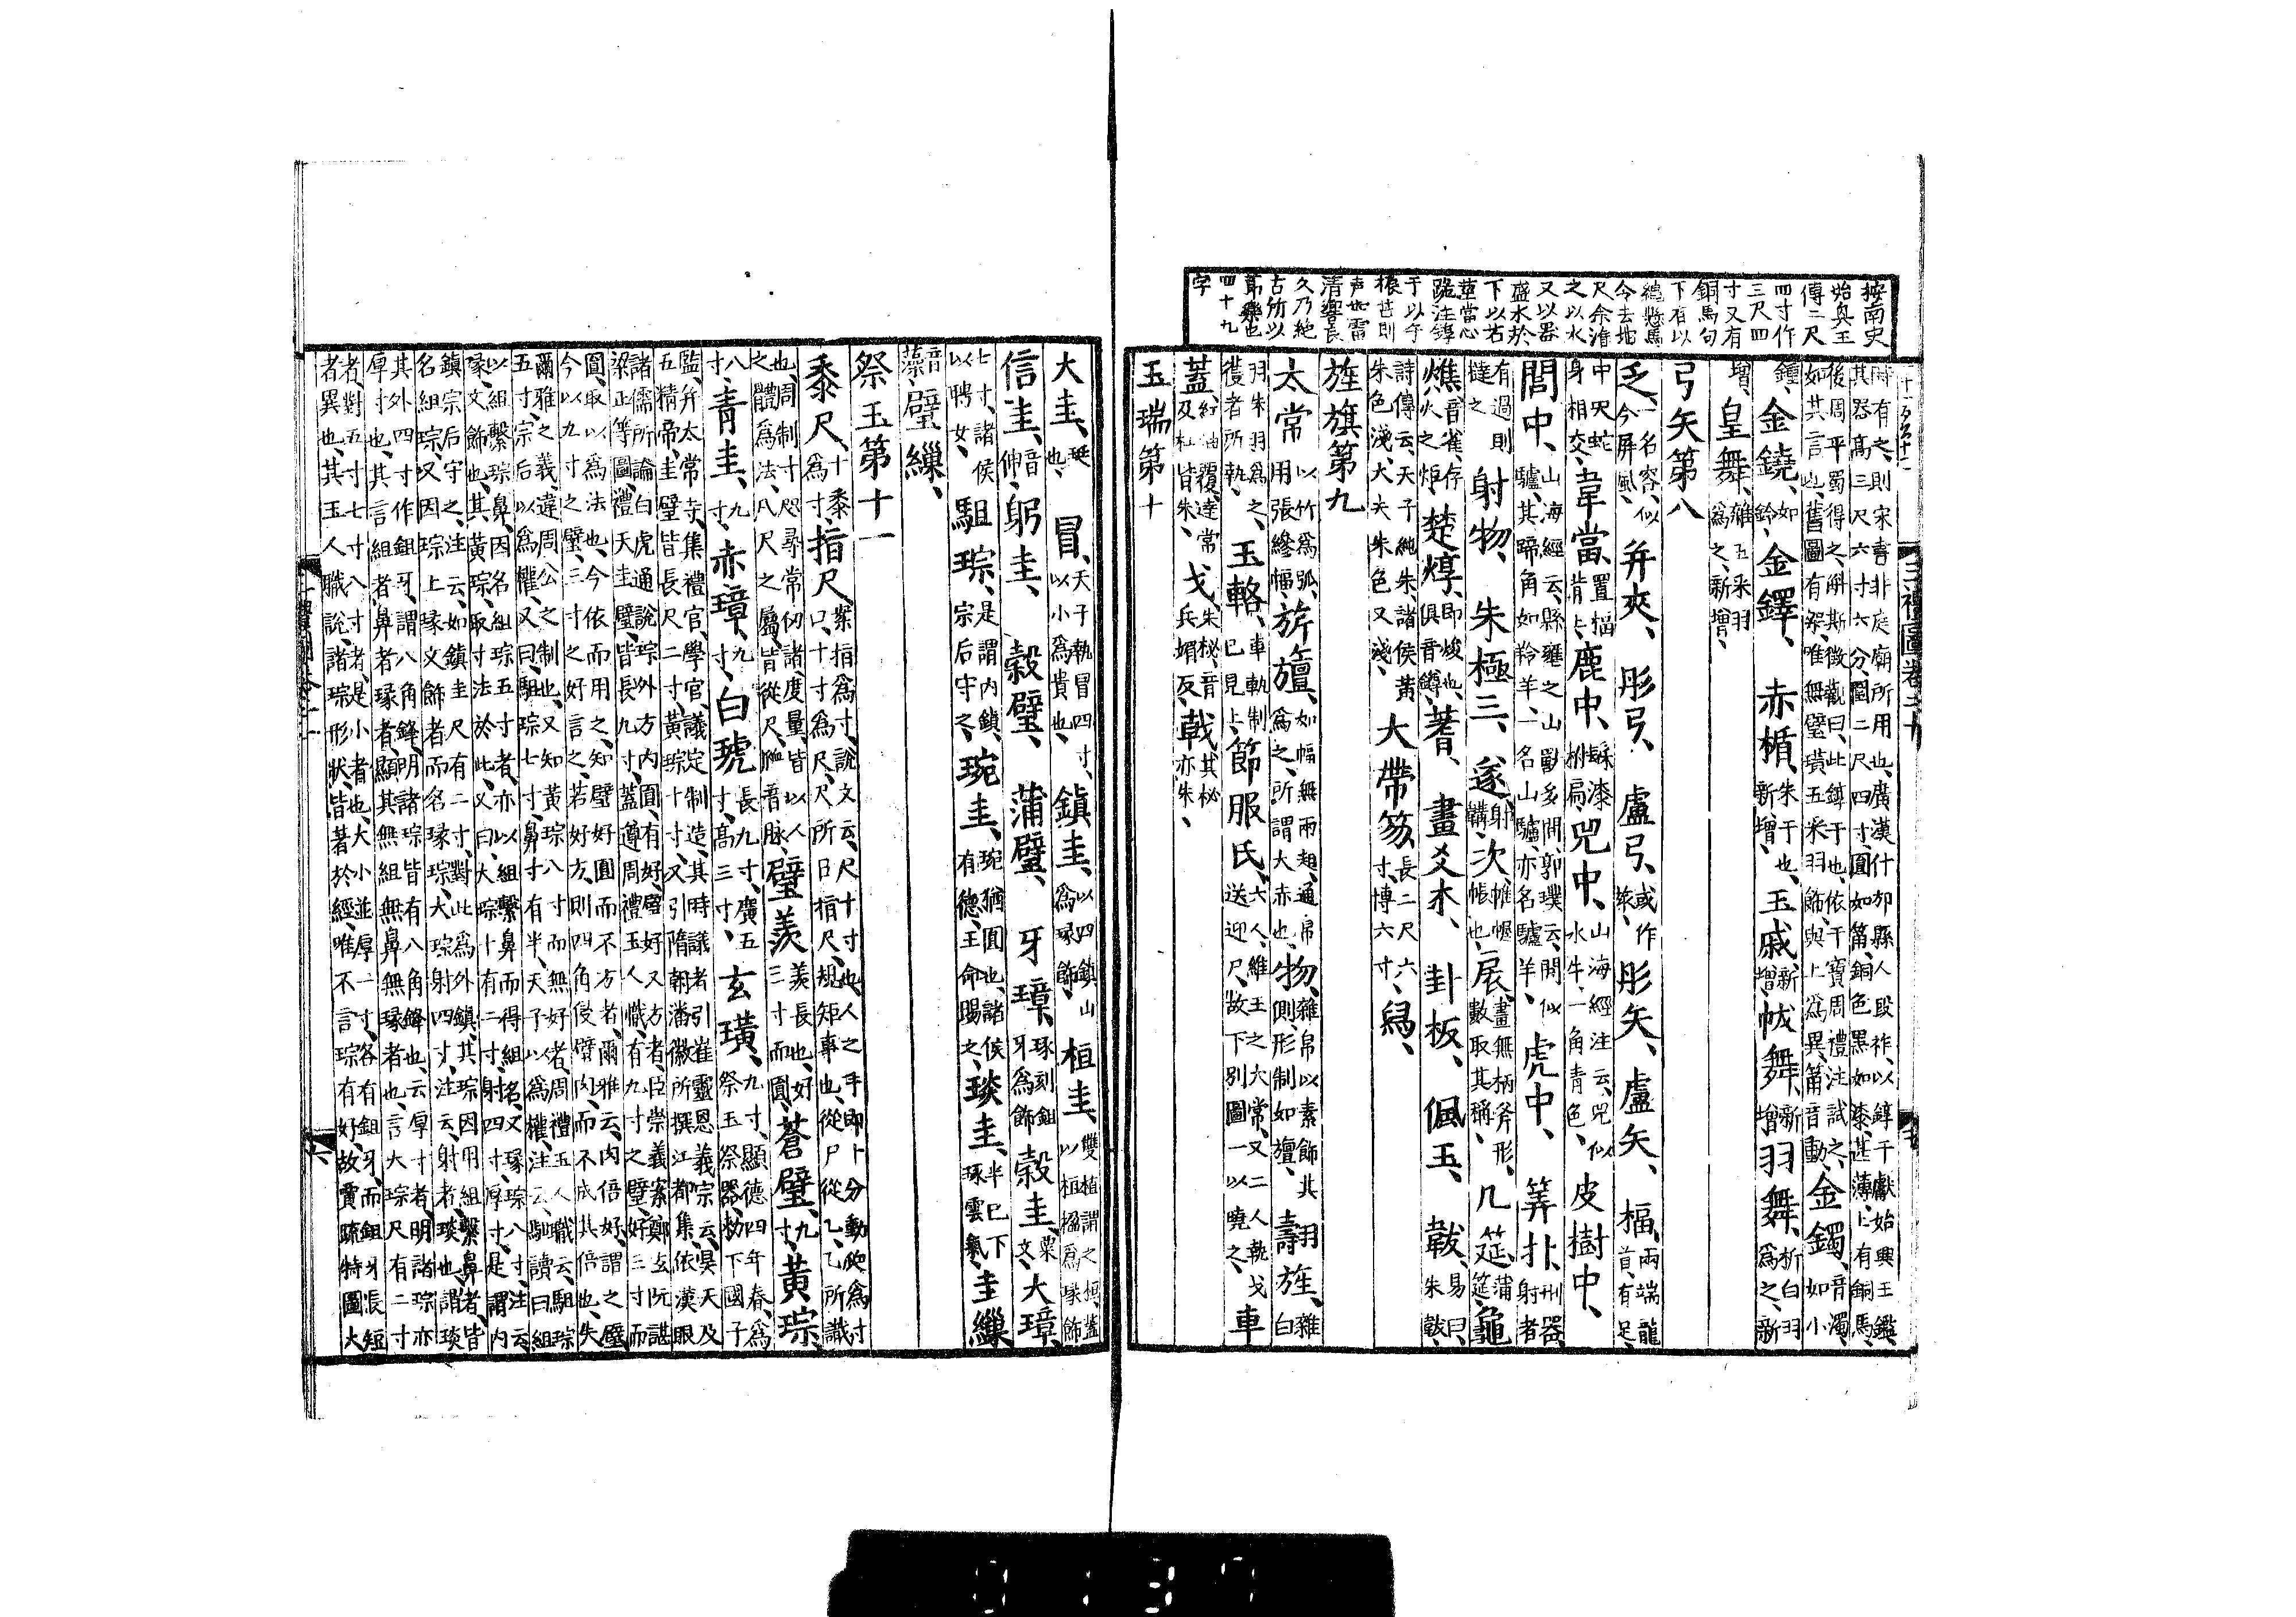 按南史
始興王
傳二尺
四寸作
三尺四
寸又有
銅馬句
下有以
繩懸馬
今去地
尺余灌
之以水
又以器
盛水於
下以芒
莖當心
跪注錞
于以手
振芒則
声如雷
清響長
久乃絶
古所以
節樂也
四十九
字
時有之則宋書非庭廟所用也廣漢什邡縣人段祚以錞于獻始興王鑑
其器高三尺六寸六分圍二尺四寸圓如筩銅色黑如漆甚薄上有銅馬
後周平蜀得之斛斯徵觀曰此錞于也依干寶周禮注試之
如其言也舊圖有簗唯無璧璜五采羽飾與上爲異簫音動金鐲音濁如小
鍾金鐃如鈴金鐸赤楯朱干也新增玉戚新增帗舞新增羽舞析白羽爲之新
增皇舞雜五采羽爲之新增
弓矢第八
乏一名容似今屏風并夾彤弓盧弓或作玈彤矢盧矢楅兩端龍首有足
中央蛇身相交韋當置楅背上鹿中髹漆柎扁兕中山海經注云兕似水牛一角青色皮樹中
閭中山海經云縣雍之山獸多閭郭璞云閭似驢其蹄角如羚羊一名山驢亦名驢羊虎中筭扑刑器射者
有過則撻之射物朱極三遂射韝次帷幄帳也扆畫無柄斧形數取其稱几筵蒲筵龜
燋音雀存火之炬楚焞即焌也俱音鐏蓍畫爻木卦板佩玉韍易曰朱韍
詩傳云天子純朱諸侯黃朱色淺大夫朱色又淺大帶笏長二尺六寸博六寸舄
旌旗第九
太常以竹爲弧用張縿幅旂旜如幅無兩翅通帛爲之所謂大赤也物雜帛以素飾其側形制如旜翿旌雜白
羽朱羽爲之獲者所執玉輅車軌制已見上節服氏六人維王之大常又二人執戈送迎尸故下別圖一以曉之車
蓋紅油覆達常及杠皆朱戈朱柲音兵媚反戟其柲亦朱
玉瑞第十
大圭珽也冒天子執冒四寸以小爲貴也鎮圭以四鎮山爲瑑飾桓圭雙植謂之桓蓋以桓楹爲瑑飾
信圭音伸躬圭穀璧蒲璧牙璋琢刻鉏牙爲飾穀圭粟文大璋
七寸諸侯以聘女駔琮是謂内鎮宗后守之琬圭琬猶圓也諸侯有德王命賜之琰圭半已下琢雲氣圭繅
音藻璧繅
祭玉第十一
黍尺十黍爲寸指尺案指爲寸說文云尺十寸也人之手卻十分動脉爲寸口十寸爲尺尺所曰指尺規矩事也從尸從乙乙所識
也周制寸咫尋常仞諸度量皆以人之體爲法八尺之屬皆從尺脈音脉璧羨羨長也好三寸而圓蒼璧九寸黃琮
八寸青圭九寸赤璋九寸白琥長九寸廣五寸高三寸玄璜九寸顯德四年春爲祭玉祭器勑下國子
監并太常寺集禮官學官議定制造其時議者引崔靈恩義宗云昊天及
五精帝圭璧皆長尺二寸黃琮十寸又引隋朝潘徽所撰江都集依漢眼
諸儒所論白虎通說琮外方内圓有好璧好又方者臣崇義案鄭玄阮諶
梁正等圖禮天圭璧皆長九寸蓋遵周禮玉人職有九寸之璧好三寸而
圓取以爲法也今依而用之知璧好圓而不方者爾雅云肉倍好謂之璧
今以九寸之璧三寸之好言之若好方則四角侵臂肉而不成其倍也失
爾雅之義違周公之制也又知黃琮八寸而無好者周禮玉人職云駔琮
五寸宗后以爲權又曰駔琮七寸鼻寸有半天子以爲權注云駔讀曰組
以組繫琮鼻因名組琮五寸者亦以組繫鼻而得組名又瑑琮八寸注云
瑑文飾也其黃琮取寸法於此又曰大琮十有二寸射四寸厚寸是謂内
鎮宗后守之注云如鎮圭尺有二寸對此爲外鎮其琮因用組繫鼻者皆
名組琮又因琮上瑑文飾者而名瑑琮大琮射四寸注云射者琰也謂琰
其外四寸作鉏牙謂八角鋒明諸琮皆有八角鋒也云厚寸者明諸琮亦
厚寸也其言組者鼻者瑑者顯其無組無鼻無瑑者也言大琮尺有二寸
者對五寸七寸八寸者是小者也大小並厚一寸各有鉏牙而鉏牙長短
者異也其玉人職說諸琮形狀皆著於經唯不言琮有好故賈疏特圖大